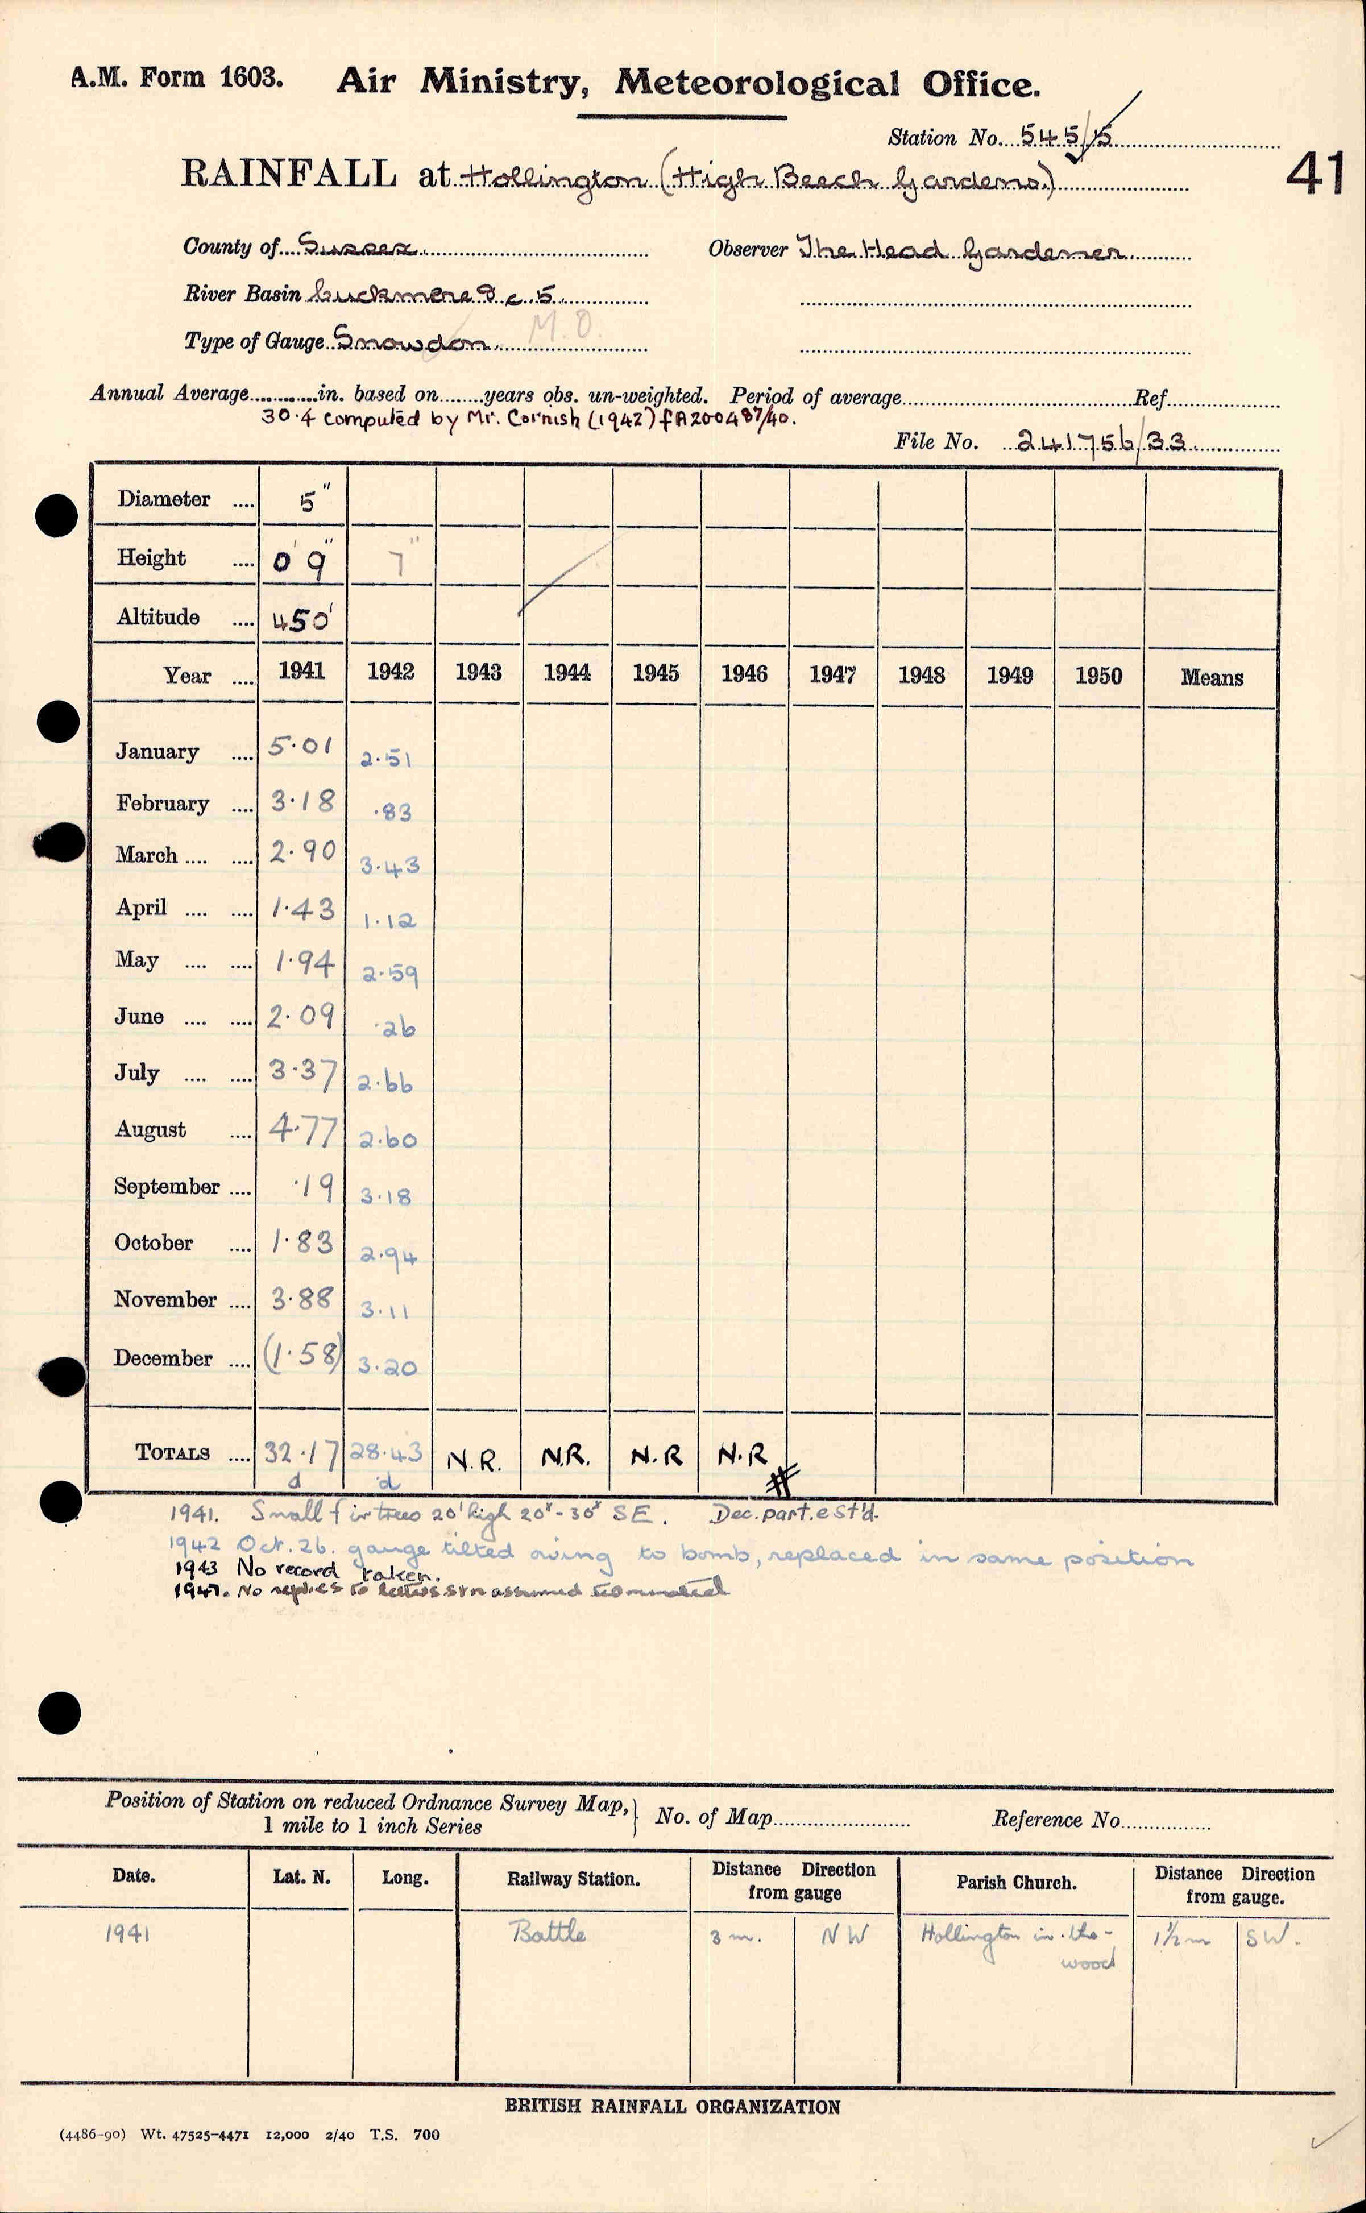 A.M. Form 1603. Air Ministry, Meteorological Office.
Station No. 545/15
41
RAINFALL at Hollington (High Beech Gardens.)
County of Sussex Observer The Head Gardener
River Basin Cuckmere &c. 5.
Type of Gauge Snowdon. M.O.
Annual Average............in. based on........years obs. un-weighted. Period of average........Ref........
30.4 computed by Mr. Cornish (1942) f A200487/40.
File No. 241756/33
Diameter .... 5"
Height .... 0' 9" 7"
Altitude .... 450'
Year .... 1941 1942 1943 1944 1945 1946 1947 1948 1949 1950 Means
January .... 5.01 2.51
February .... 3.18 .83
March .... .... 2.90 3.43
April .... .... 1.43 1.12
May .... .... 1.94 2.59
June .... .... 2.09 .26
July .... .... 3.37 2.66
August .... 4.77 2.60
September .... .19 3.18
October .... 1.83 2.94
November .... 3.88 3.11
December .... (1.58) 3.20
TOTALS .... 32.17 28.43 N.R. N.R. N.R N.R
d d #
1941. Small fir trees 20' high 20°-30° SE. Dec. part. est'd.
1942 Oct. 26. gauge tilted owing to bomb, replaced in same position
1943 No record taken.
1947. No replies to letters stn assumed terminated
Position of Station on reduced Ordnance Survey Map, } No. of Map........ Reference No........
1 mile to 1 inch Series
Date. Lat. N. Long. Railway Station. Distance Direction from gauge Parish Church. Distance Direction from gauge.
1941 Battle 3 m. NW Hollington in-the- 1½ m SW.
wood
BRITISH RAINFALL ORGANIZATION
(4486-90) Wt. 47525-4471 12,000 2/40 T.S. 700